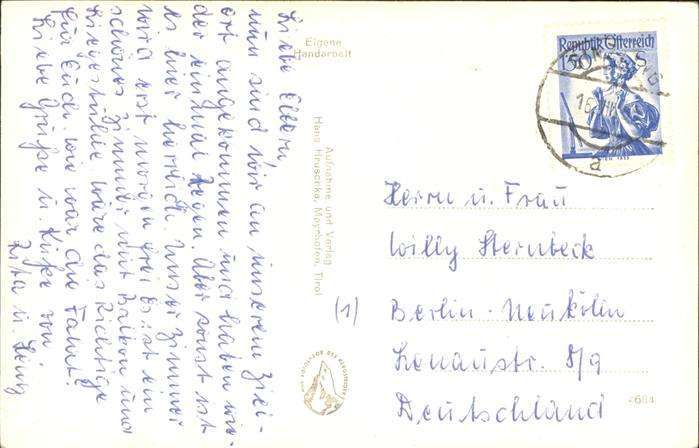 Liebe Eltern,
nun sind wir an unserem Ziel-
ort angekommen und haben wie-
der einmal Regen. Aber sonst ist
es hier herrlich. Unser Zimmer
wird erst morgen frei. Es ist ein
schönes Zimmer mit Balkon und
Liegestühle. Wäre das Richtige
für Euch. Wie war die Fahrt?
Liebe Grüße u. Küße von
Rita u. Heinz
Eigene
Handarbeit
Aufnahme und Verlag
Hans Hruschka, Mayrhofen, Tirol
Republik Österreich
1·50 S
a
Herrn u. Frau
Willy Sternbeck
(1) Berlin-Neukölln
Lenaustr. 8/9
Deutschland